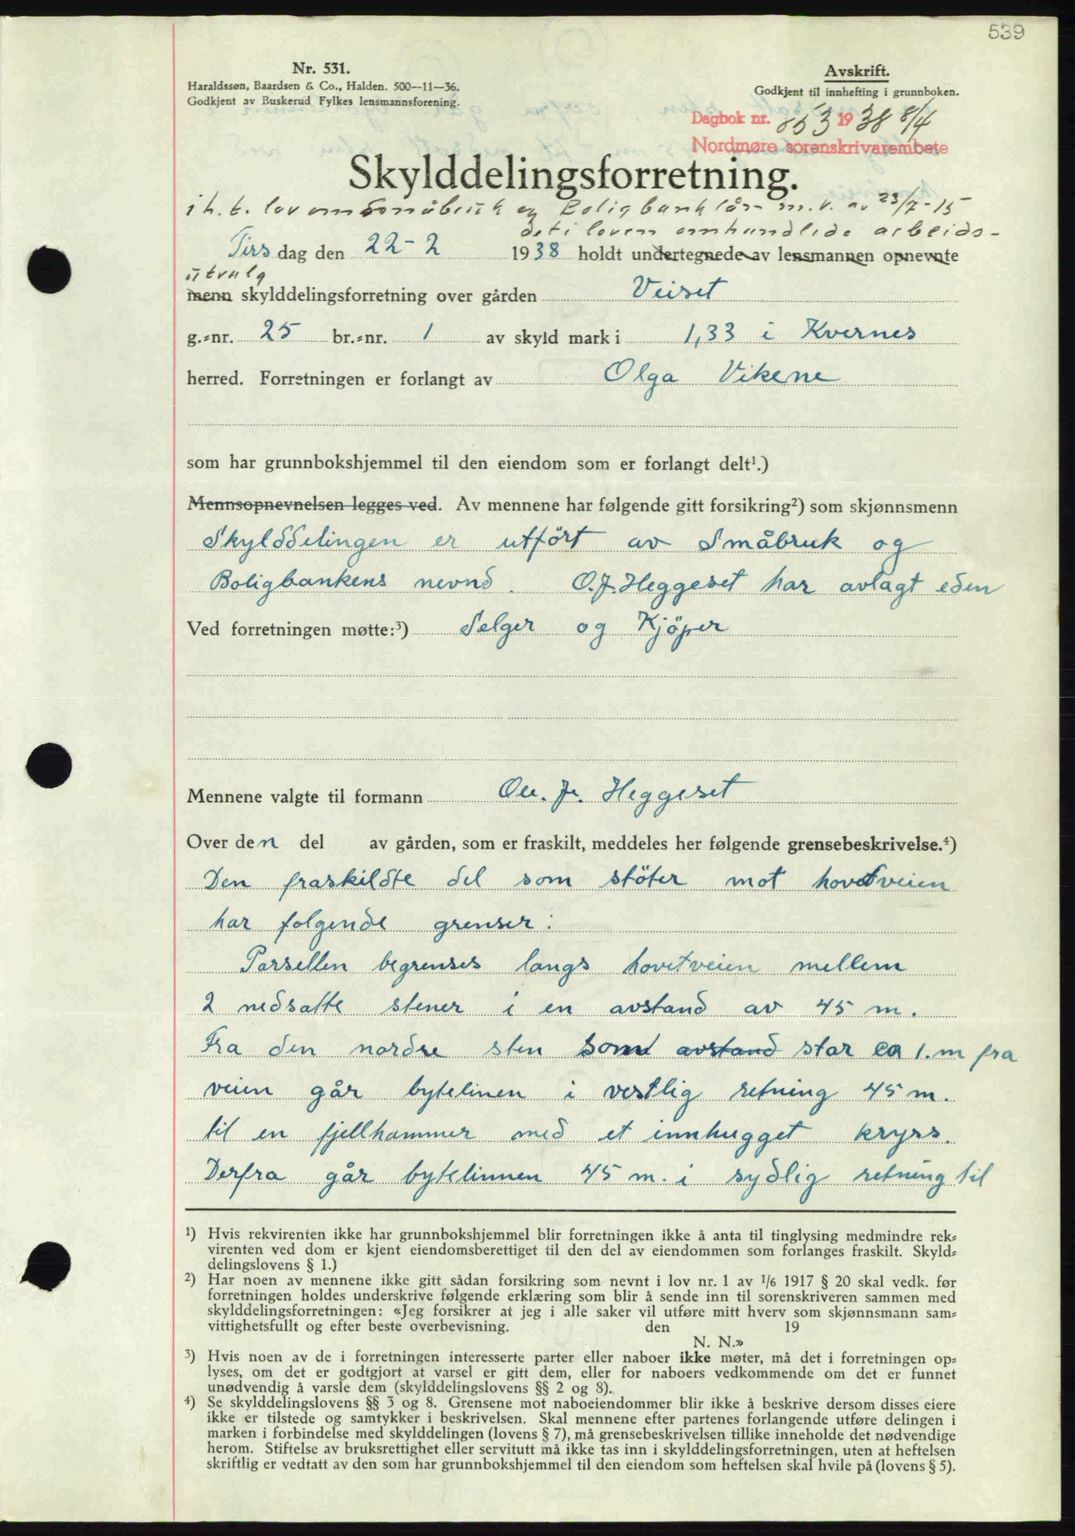 539
Nr. 531.
Haraldssøn, Baardsen & Co., Halden. 500—11—36.
Godkjent av Buskerud Fylkes lensmannsforening.
Avskrift.
Godkjent til innhefting i grunnboken.
Dagbok nr. 853 1938 8/4
Nordmøre sorenskrivarembete
Skylddelingsforretning.
i h. t. lov om Småbruk og Boligbanklån m. v. av 23/7-15
det i loven omhandlide arbeids-
Tirsdag den 22-2 1938 holdt undertegnede av lensmannen opnevnte
utvalg
menn skylddelingsforretning over gården Veiset
g.-nr. 25 br.-nr. 1 av skyld mark i 1,33 i Kvernes
herred. Forretningen er forlangt av Olga Vikene
som har grunnbokshjemmel til den eiendom som er forlangt delt¹.)
Mennsopnevnelsen legges ved. Av mennene har følgende gitt forsikring²) som skjønnsmenn
Skylddelingen er utfört av Småbruk og
Boligbankens nevnd. O.J. Heggeset har avlagt eden
Ved forretningen møtte:³) Selger og Kjöper
Mennene valgte til formann Ole. J. Heggeset
Over den del av gården, som er fraskilt, meddeles her følgende grensebeskrivelse.⁴)
Den fraskildte del som stöter mot hovetveien
har folgende grenser:
Parsellen begrenses langs hovetveien mellem
2 nedsatte stener i en avstand av 45 m.
Fra den nordre sten som avstand star ca 1. m fra
veien går bytelinen i vestlig retning 45 m.
til en fjellhammer med et innhugget kryrs.
Derfra går bytelinnen 45 m. i sydlig retning til
¹) Hvis rekvirenten ikke har grunnbokshjemmel blir forretningen ikke å anta til tinglysing medmindre rek-
virenten ved dom er kjent eiendomsberettiget til den del av eiendommen som forlanges fraskilt. Skyld-
delingslovens § 1.)
²) Har noen av mennene ikke gitt sådan forsikring som nevnt i lov nr. 1 av ¹/₆ 1917 § 20 skal vedk. før
forretningen holdes underskrive følgende erklæring som blir å sende inn til sorenskriveren sammen med
skylddelingsforretningen: «Jeg forsikrer at jeg i alle saker vil utføre mitt hverv som skjønnsmann sam-
vittighetsfullt og efter beste overbevisning. den 19
N. N.»
³) Hvis noen av de i forretningen interesserte parter eller naboer ikke møter, må det i forretningen op-
lyses, om det er godtgjort at varsel er gitt dem, eller for naboers vedkommende om det er funnet
unødvendig å varsle dem (skylddelingslovens §§ 2 og 8).
⁴) Se skylddelingslovens §§ 3 og 8. Grensene mot naboeiendommer blir ikke å beskrive dersom disses eiere
ikke er tilstede og samtykker i beskrivelsen. Skal mennene efter partenes forlangende utføre delingen i
marken i forbindelse med skylddelingen (lovens § 7), må grensebeskrivelsen tillike inneholde det nødvendige
herom. Stiftelse av bruksrettighet eller servitutt må ikke tas inn i skylddelingsforretningen, uten at heftelsen
skriftlig er vedtatt av den som har grunnbokshjemmel til den eiendom som heftelsen skal hvile på (lovens § 5).